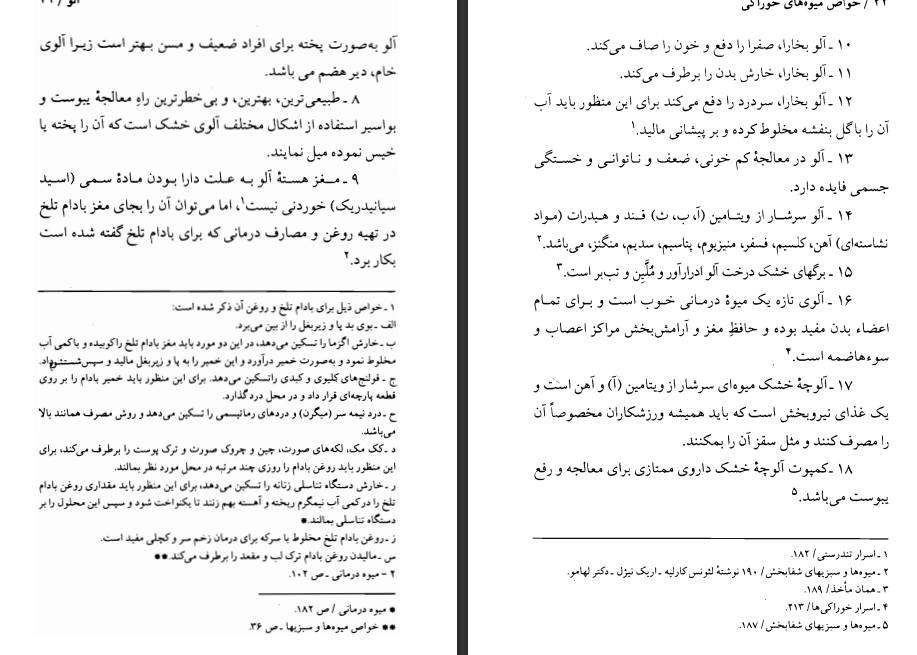 آلو / ۲۱
آلو به‌صورت پخته برای افراد ضعیف و مسن بهتر است زیرا آلوی
خام، دیر هضم می باشد.
۸ ـ طبیعی‌ترین، بهترین، و بی‌خطرترین راهِ معالجهٔ یبوست و
بواسیر استفاده از اشکال مختلف آلوی خشک است که آن را پخته یا
خیس نموده میل نمایند.
۹ ـ مـغز هستهٔ آلو بـه عـلت دارا بـودن مـادهٔ سـمی (اسـید
سیانیدریک) خوردنی نیست۱، اما می‌توان آن را بجای مغز بادام تلخ
در تهیه روغن و مصارف درمانی که برای بادام تلخ گفته شده است
بکار برد.۲
۱ ـ خواص ذیل برای بادام تلخ و روغن آن ذکر شده است:
الف ـ بوی بد پا و زیربغل را از بین می‌برد.
ب ـ خارش اگزما را تسکین می‌دهد، در این دو مورد باید مغز بادام تلخ را کوبیده و با کمی آب
مخلوط نمود و به‌صورت خمیر درآورد و این خمیر را به پا و زیربغل مالید و سپس شستشو داد.
ج ـ قولنج‌های کلیوی و کبدی را تسکین می‌دهد. برای این منظور باید خمیر بادام را بر روی
قطعه پارچه‌ای قرار داد و در محل درد گذارد.
ح ـ درد نیمه سر (میگرن) و دردهای رماتیسمی را تسکین می‌دهد و روش مصرف همانند بالا
می‌باشد.
د ـ کک مک، لکه‌های صورت، چین و چروک صورت و ترک پوست را برطرف می‌کند، برای
این منظور باید روغن بادام را روزی چند مرتبه در محل مورد نظر بمالند.
ر ـ خارش دستگاه تناسلی زنانه را تسکین می‌دهد، برای این منظور باید مقداری روغن بادام
تلخ را در کمی آب نیمگرم ریخته و آهسته بهم زنند تا یکنواخت شود و سپس این محلول را بر
دستگاه تناسلی بمالند.*
ز ـ روغن بادام تلخ مخلوط با سرکه برای درمان زخم سر و کچلی مفید است.
س ـ مالیدن روغن بادام ترک لب و مقعد را برطرف می‌کند.**
۲ – میوه درمانی ـ ص ۱۰۲.
* میوه درمانی / ص ۱۸۲.
** خواص میوه‌ها و سبزیها ـ ص ۳۶.
۲۲ / خواص میوه‌های خوراکی
۱۰ ـ آلو بخارا، صفرا را دفع و خون را صاف می‌کند.
۱۱ ـ آلو بخارا، خارش بدن را برطرف می‌کند.
۱۲ ـ آلو بخارا، سردرد را دفع می‌کند برای این منظور باید آب
آن را با گل بنفشه مخلوط کرده و بر پیشانی مالید.۱
۱۳ ـ آلو در معالجهٔ کم خونی، ضعف و ناتوانی و خستگی
جسمی فایده دارد.
۱۴ ـ آلو سرشار از ویتامین (آ، ب، ث) قـند و هـیدرات (مـواد
نشاسته‌ای) آهن، کلسیم، فسفر، منیزیوم، پتاسیم، سدیم، منگنز، می‌باشد.۲
۱۵ ـ برگهای خشک درخت آلو ادرارآور و مُلَیِّن و تب‌بر است.۳
۱۶ ـ آلوی تازه یک میوهٔ درمـانی خـوب است و بـرای تمـام
اعضاء بدن مفید بوده و حافظِ مغز و آرامش‌بخش مراکز اعصاب و
سوءهاضمه است.۴
۱۷ ـ آلوچهٔ خشک میوه‌ای سرشار از ویتامین (آ) و آهن است و
یک غذای نیروبخش است که باید همیشه ورزشکاران مخصوصاً آن
را مصرف کنند و مثل سقز آن را بمکنند.
۱۸ ـ کمپوت آلوچهٔ خشک داروی ممتازی برای معالجه و رفع
یبوست می‌باشد.۵
۱ ـ اسرار تندرستی / ۱۸۲.
۲ ـ میوه‌ها و سبزیهای شفابخش / ۱۹۰ نوشتهٔ لئونس کارلیه ـ اریک نیژل ـ دکتر لهامو.
۳ ـ همان مأخذ / ۱۸۹.
۴ ـ اسرار خوراکی‌ها / ۲۱۳.
۵ ـ میوه‌ها و سبزیهای شفابخش / ۱۸۷.